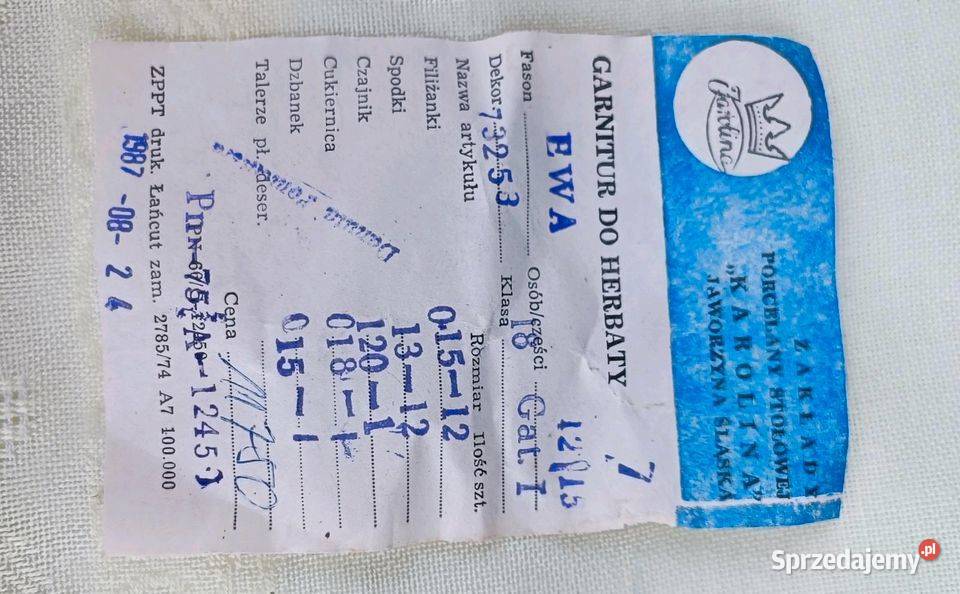 Karolina
ZAKŁADY
PORCELANY STOŁOWEJ
„KAROLINA"
JAWORZYNA ŚLĄSKA
GARNITUR DO HERBATY 7
Fason EWA Osób/części 12/15
Dekor. 79253 Klasa 18 Gat. I
Nazwa artykułu Rozmiar Ilość szt.
Filiżanki 0.15-12
Spodki 13-12
Czajnik 120-1
Cukiernica 018-1
Dzbanek 015-1
Talerze pł. deser.
Danuta
Cena
PN-75/A-12453
ZPPT druk. Łańcut zam. 2785/74 A7 100.000
1987 -08- 24
Sprzedajemy.pl